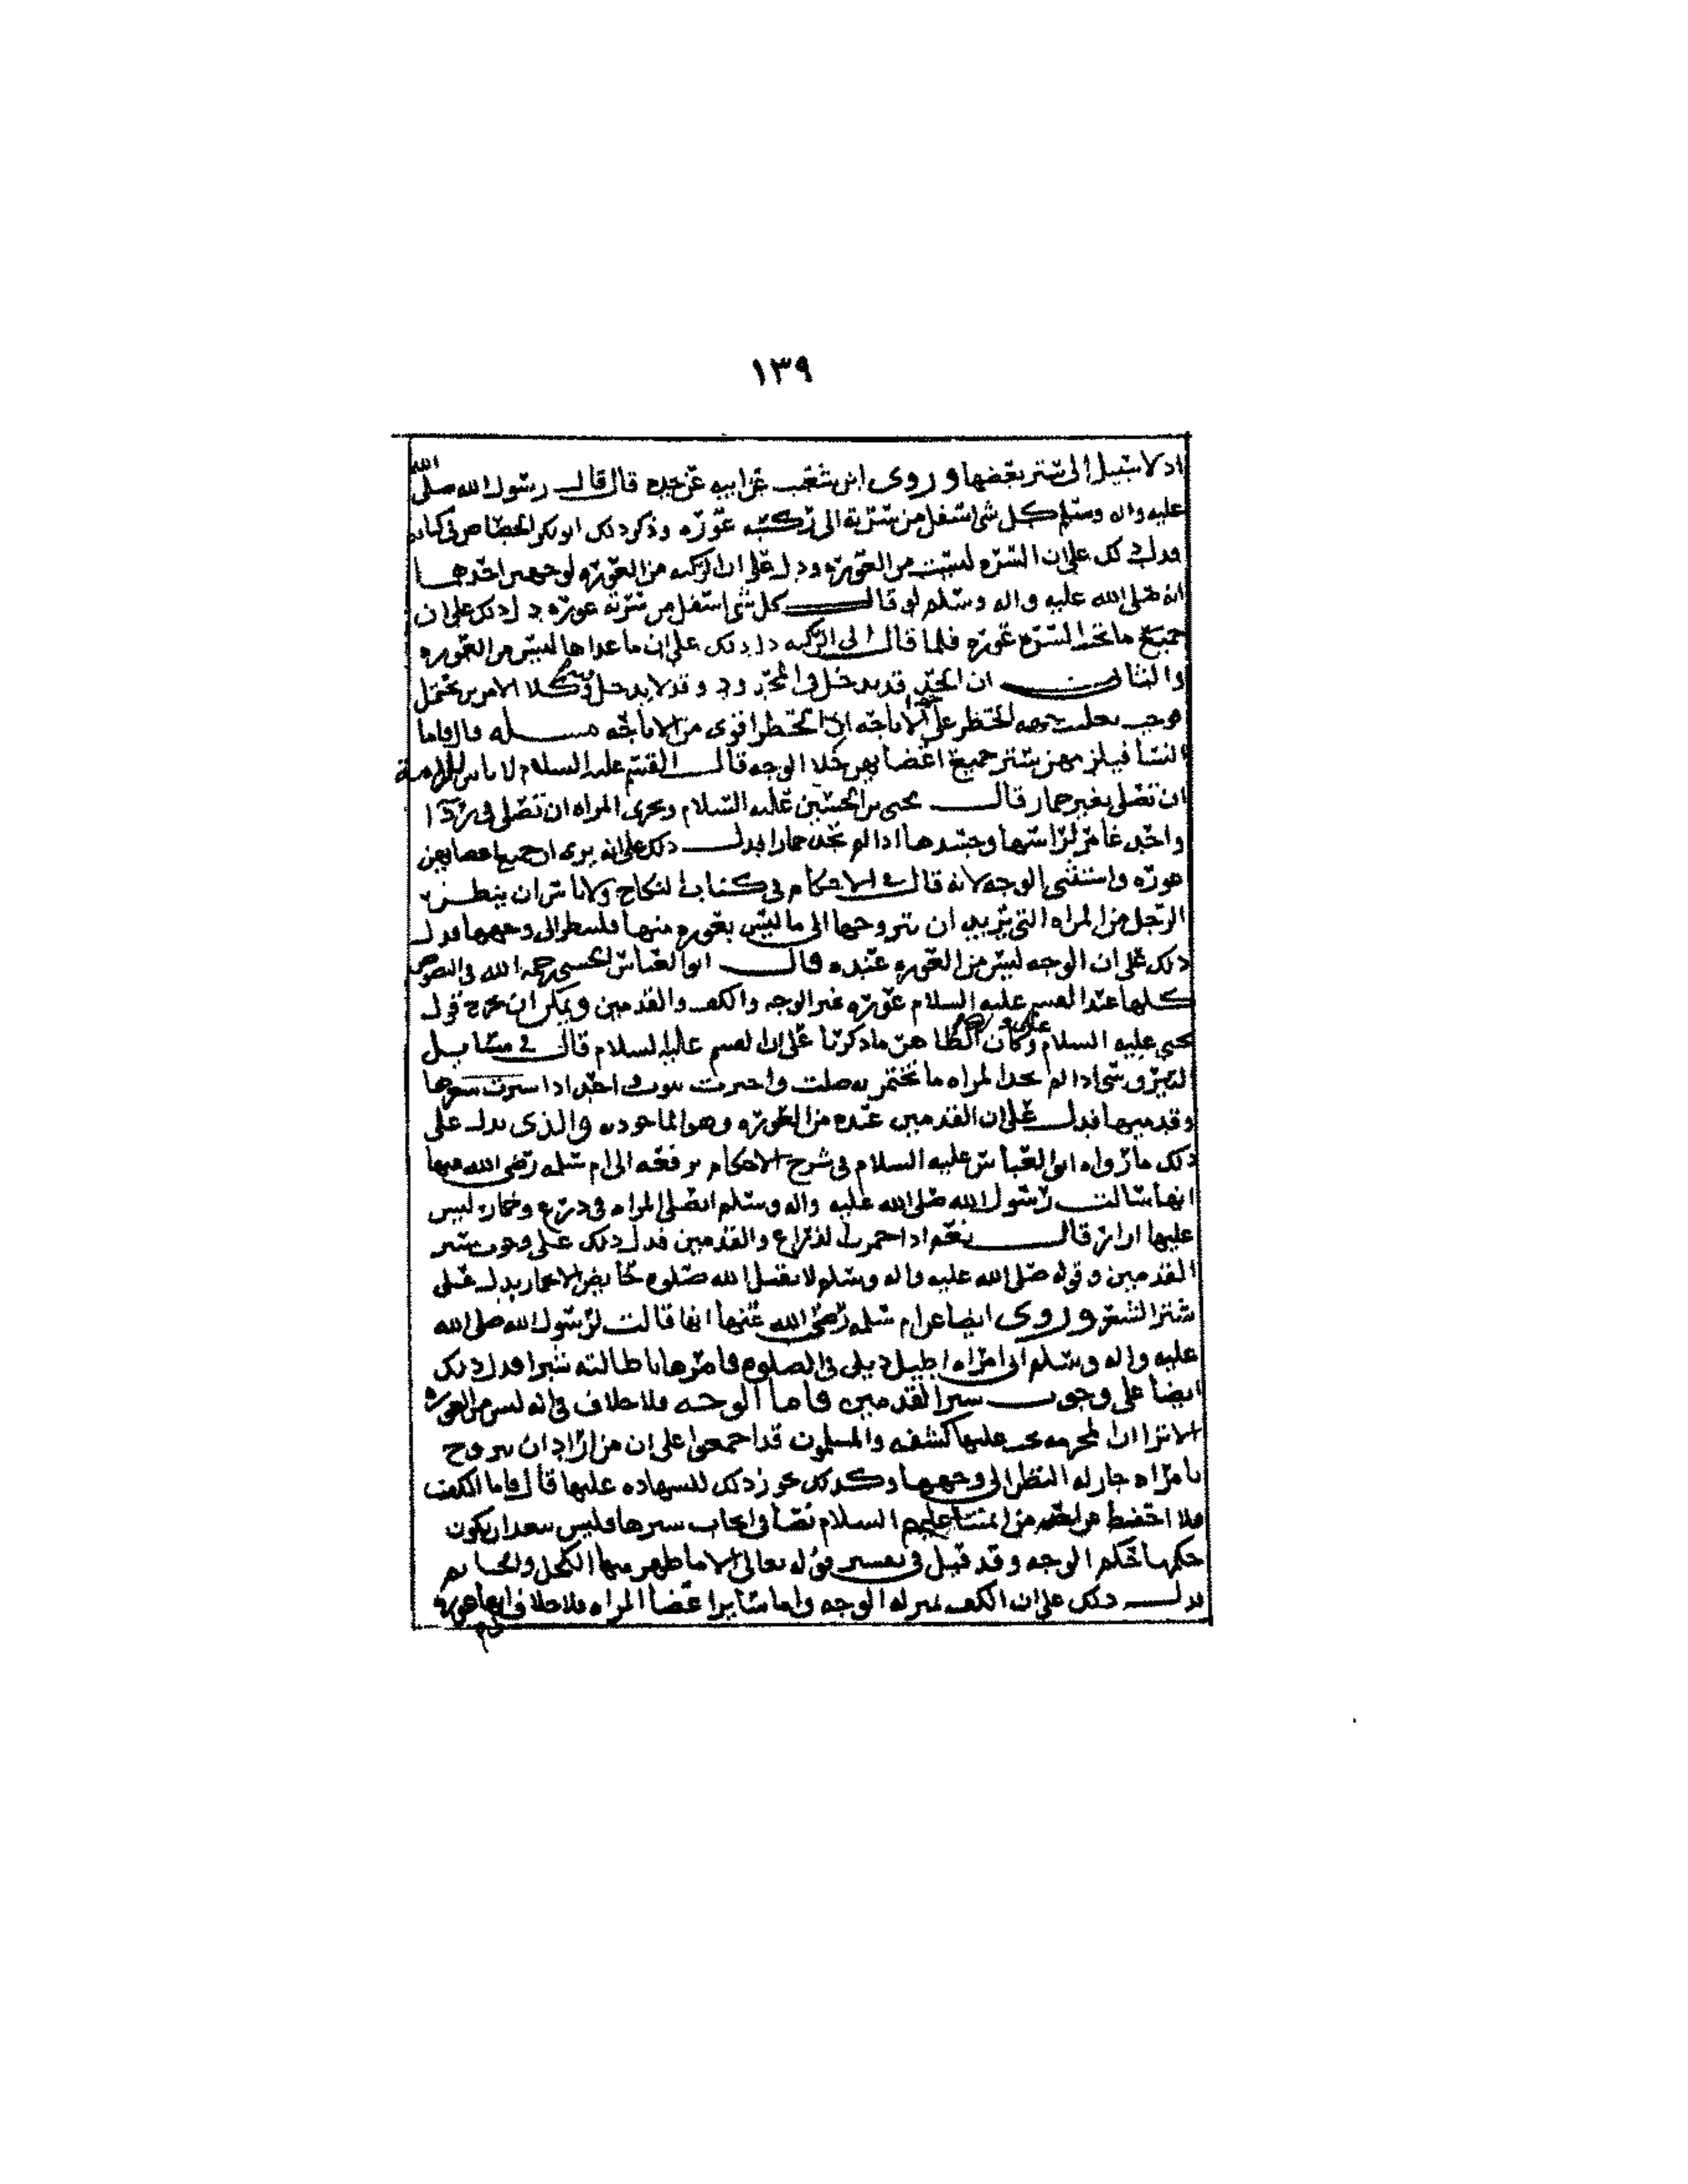 ١٣٩
اذ لا سبيل الى ستر بعضها وروى ابن شعيب عن ابيه عن جده قال قال رسول الله صلى الله
عليه واله وسلم كل شي اسفل من سرته الى ركبته عورة وذكر ذلك ابو بكر الجصاص في كتابه
فدل ذلك على ان السره ليست من العوره ودل على ان الركبه من العوره لوجهين احدهما
انه صلى الله عليه واله وسلم لو قال كل شي اسفل من سرته عوره دل ذلك على ان
جميع ما تحت السره عوره فلما قال الى الركبه دل ذلك على ان ما عداها ليس من العوره
والثاني ان الحد قد يدخل في المحدود وقد لا يدخل وكلا الامرين محتمل
فوجب الحظر على الاباحه اذ الحظر اقوى من الاباحه مسله قال واما
النسا فيلزمهن ستر جميع اعضايهن خلا الوجه قال القسم عليه السلام لا باس للامة
ان تصلي بغير خمار قال يحيى بن الحسين عليه السلام ويجزي المراه ان تصلي في ردا
واحد غامر لراسها وجسدها اذا لم تجد خمارا فدل ذلك على انه يرى ان جميع اعضايهن
عوره واستثنى الوجه لانه قال في الاحكام في كتاب النكاح ولا باس ان ينظر
الرجل من المراه التي يريد ان يتزوجها الى ما ليس بعوره منها فلينظر الى وجهها فدل
ذلك على ان الوجه ليس من العوره عنده قال ابو العباس الحسني رحمه الله في النصوص
كلها عند القسم عليه السلام عوره غير الوجه والكف والقدمين ويمكن ان يخرج قول
يحيى عليه السلام وكان الظاهر ما ذكرنا على ان القسم عليه السلام قال في مسايل
النيروسي اذا لم تجد المراه ما تختمر به صلت واجزت بثوب واحد اذا سترت شعرها
وقدميها فدل على ان القدمين عنده من العوره وهو الماخوذ به والذي يدل على
ذلك ما رواه ابو العباس عليه السلام في شرح الاحكام يرفعه الى ام سلمه رضي الله عنها
انها سالت رسول الله صلى الله عليه واله وسلم اتصلي المراه في درع وخمار ليس
عليها ازار قال نعم اذا خمرت الذراع والقدمين فدل ذلك على وجوب ستر
القدمين وقوله صلى الله عليه واله وسلم لا يقبل الله صلوه حايض الا بخمار يدل على
ستر الشعر وروى ايضا عن ام سلمه رضي الله عنها انها قالت لرسول الله صلى الله
عليه واله وسلم اني امراه اطيل ذيلي في الصلوه فامرها باطالته شبرا فدل ذلك
ايضا على وجوب ستر القدمين فاما الوجه فلا خلاف في انه ليس من العوره
الا ترا ان المحرمه يجب عليها كشفه والمسلمون قد اجمعوا على ان من اراد ان يتزوج
بامراه جاز له النظر الى وجهها وكذلك يجوز ذلك للشهاده عليها قال واما الكف
فلا احفظ عن احد من ايمتنا عليهم السلام نصا في ايجاب سترها فليس ببعد ان يكون
حكمها حكم الوجه وقد قيل في تفسير قوله تعالى الا ما ظهر منها الكحل والخاتم
فدل ذلك على ان الكف بمنزله الوجه واما ساير اعضا المراه فلا خلاف في انها عوره